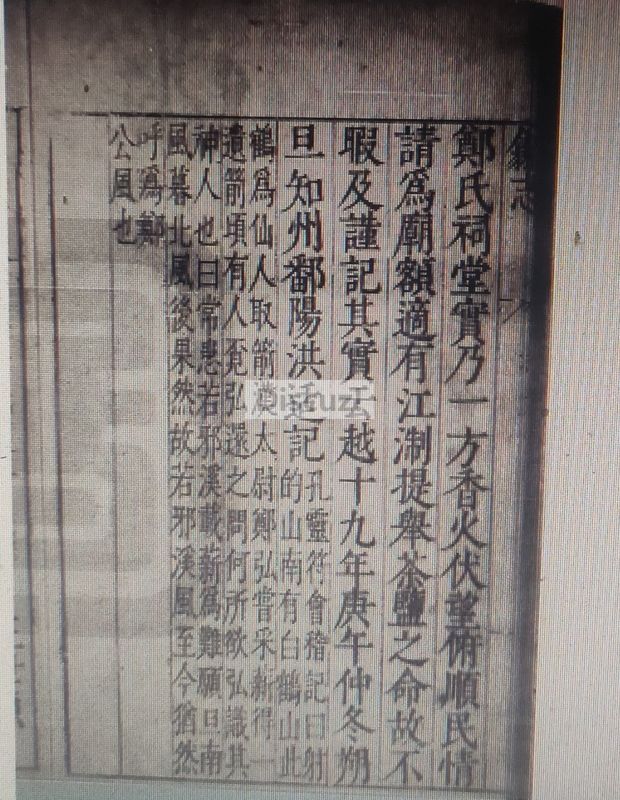 志
鄭氏祠堂實乃一方香火伏望俯順民情
請爲廟額適有江淛提舉茶鹽之命故不
暇及謹記其實云越十九年庚午仲冬朔
旦知州鄱陽洪記
孔靈符會稽記曰射
的山南有白鶴山此
鶴爲仙人取箭漢太尉鄭弘嘗采薪得一
遺箭頃有人覓弘還之問何所欲弘識其
神人也曰常患若邪溪載薪爲難願旦南
風暮北風後果然故若邪溪風至今猶然
呼爲鄭
公風也